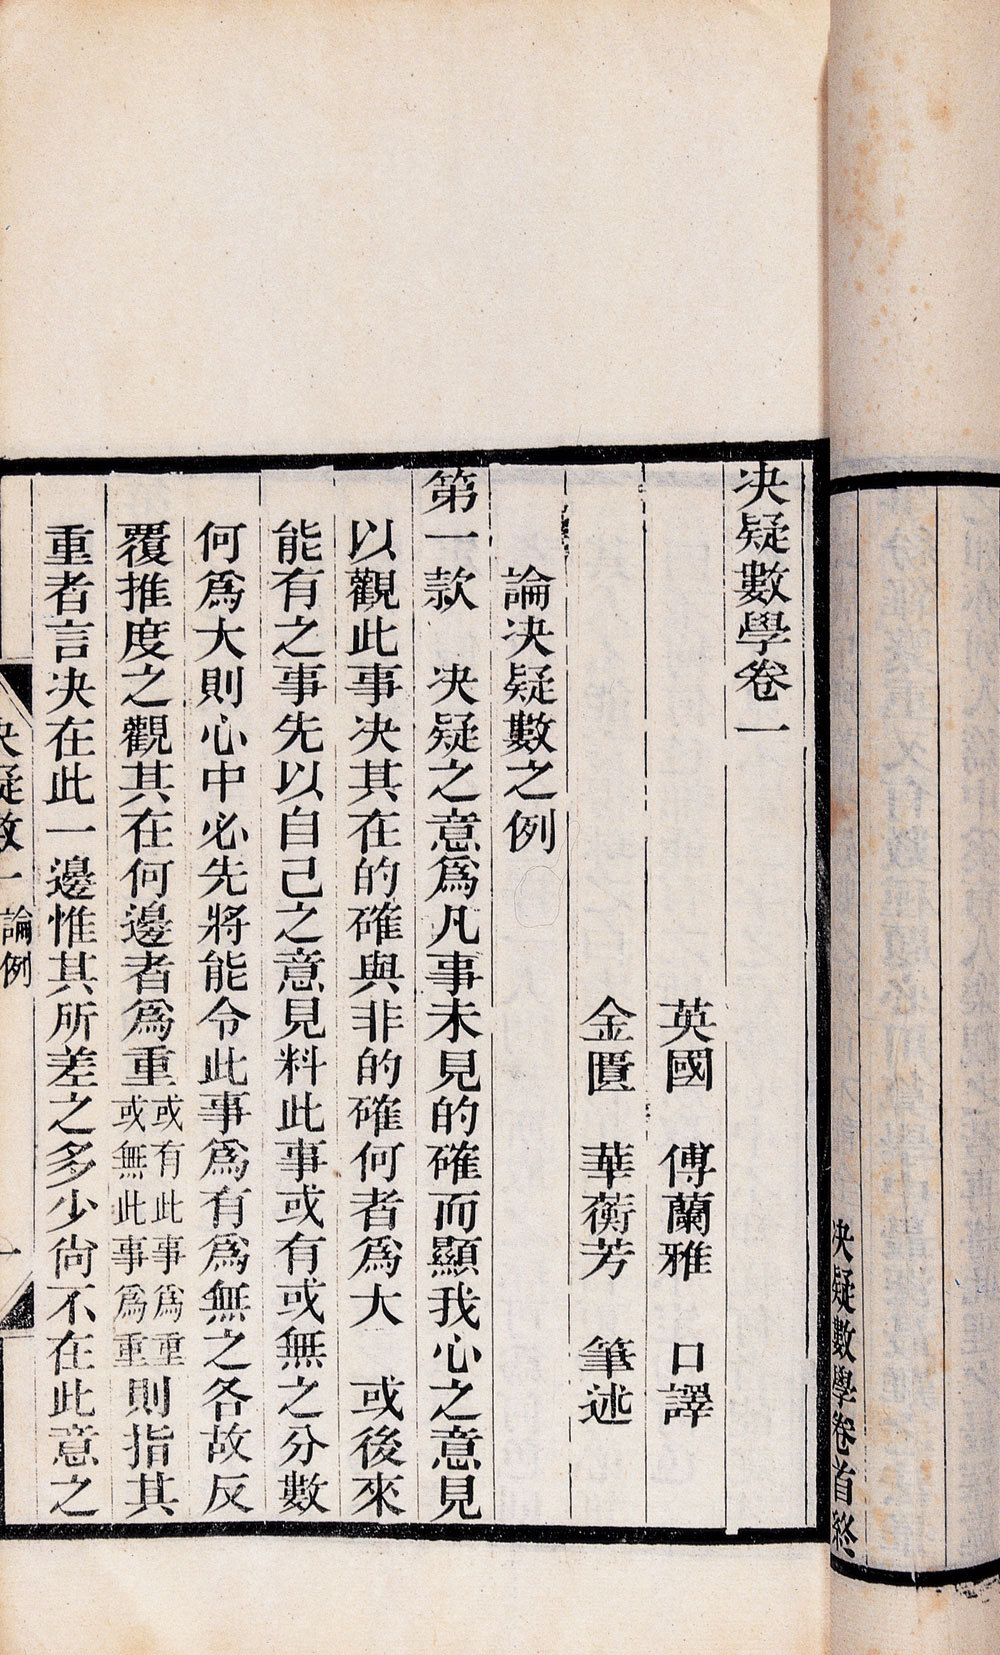 決疑數學卷首終
決疑數學卷一
英國　傅蘭雅　口譯
金匱　華蘅芳　筆述
論決疑數之例
第一款　決疑之意爲凡事未見的確而顯我心之意見
以觀此事決其在的確與非的確何者爲大　或後來
能有之事先以自己之意見料此事或有或無之分數
何爲大則心中必先將能令此事爲有爲無之各故反
覆推度之觀其在何邊者爲重或有此事爲重或無此事爲重則指其
重者言決在此一邊惟其所差之多少尙不在此意之
決疑數一　論例　一